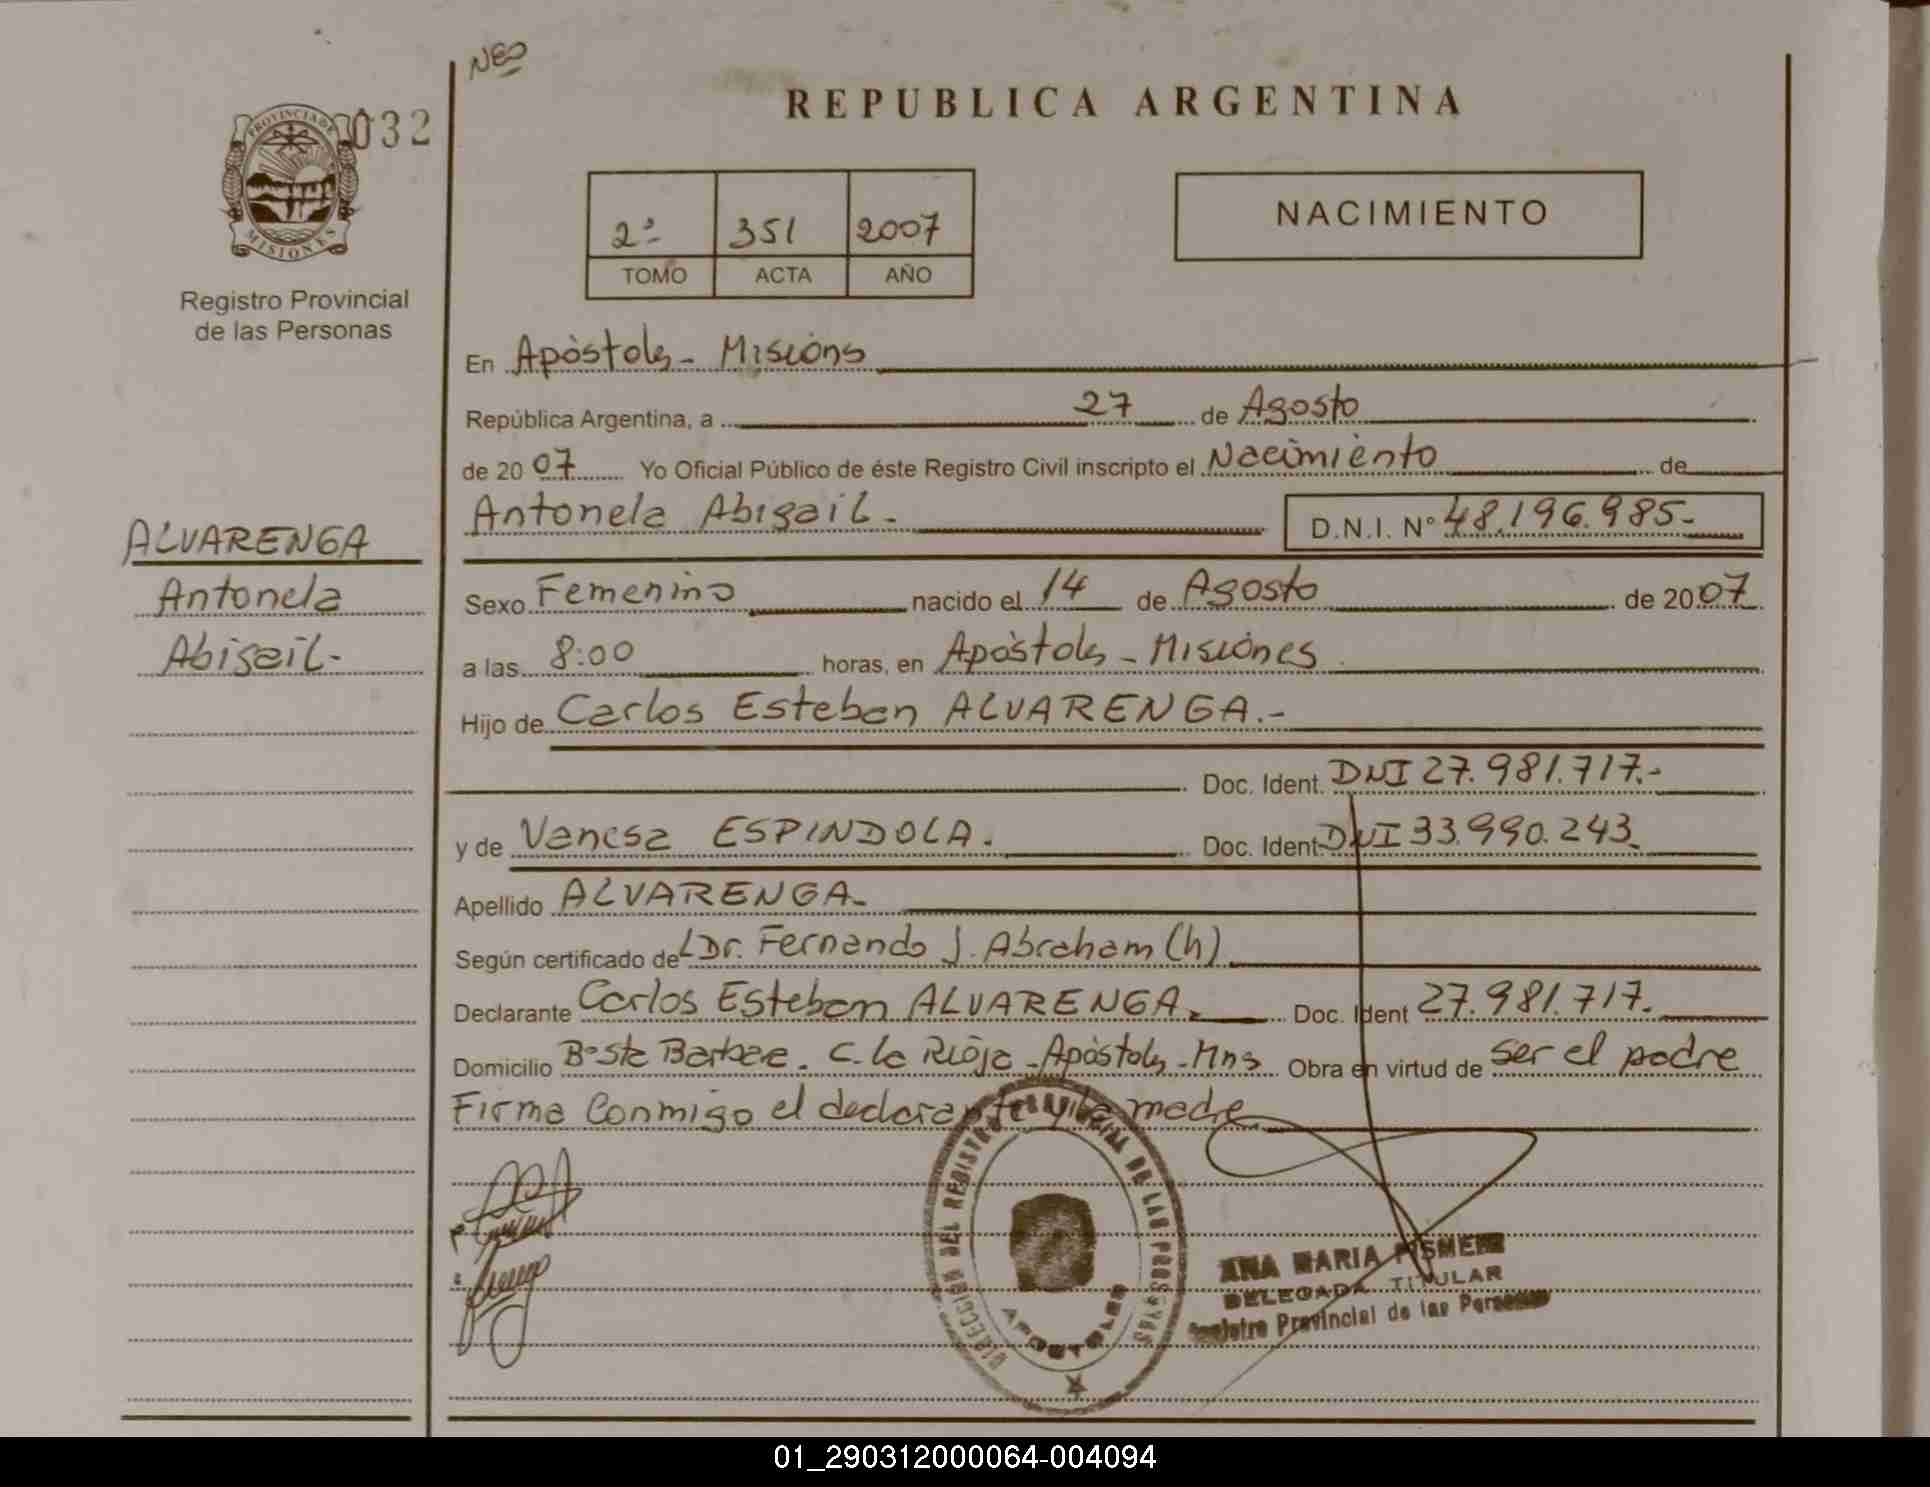 NEO
032
PROVINCIA DE
MISIONES
Registro Provincial
de las Personas
REPUBLICA ARGENTINA
2º 351 2007
TOMO ACTA AÑO
NACIMIENTO
En Apóstoles - Misiones
República Argentina, a 27 de Agosto
de 2007 Yo Oficial Público de éste Registro Civil inscripto el Nacimiento de
Antonela Abigail.- D.N.I. Nº 48.196.985.-
ALVARENGA
Antonela
Abigail.-
Sexo Femenino nacido el 14 de Agosto de 2007
a las 8:00 horas, en Apóstoles - Misiones
Hijo de Carlos Esteban ALVARENGA.-
Doc. Ident. DNI 27.981.717.-
y de Vanesa ESPINDOLA. Doc. Ident. DNI 33.990.243.
Apellido ALVARENGA.
Según certificado del Dr. Fernando J. Abraham (h)
Declarante Carlos Esteban ALVARENGA. Doc. Ident 27.981.717.
Domicilio Bº Sta Barbara. C. la Rioja - Apóstoles - Mns Obra en virtud de ser el padre
Firma Conmigo el declarante y la madre
DIRECCION DEL REGISTRO PROVINCIAL DE LAS PERSONAS
APOSTOLES
ANA MARIA
DELEGADA TITULAR
Registro Provincial de las Personas
01_290312000064-004094